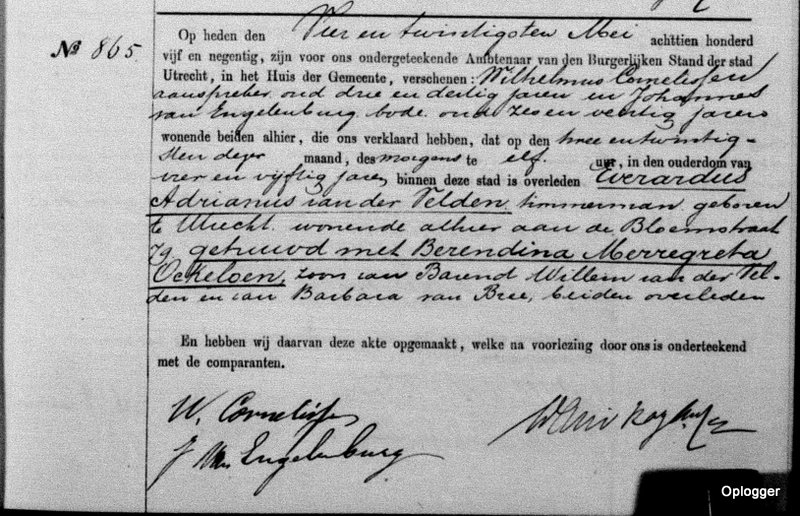 No 865
Op heden den Vier en twintigsten Mei achttien honderd
vijf en negentig, zijn voor ons ondergeteekende Ambtenaar van den Burgerlijken Stand der stad
Utrecht, in het Huis der Gemeente, verschenen: Wilhelmus Cornelissen
aanspreker oud drie en dertig jaren en Johannes
van Engelenburg bode oud zes en veertig jaren
wonende beiden alhier, die ons verklaard hebben, dat op den twee en twintig-
sten dezer maand, des morgens te elf uur, in den ouderdom van
vier en vijftig jaren binnen deze stad is overleden Everardus
Adrianus van der Velden, timmerman, geboren
te Utrecht wonende alhier aan de Bloemstraat
79 getrouwd met Berendina Merregreta
Ockeloen, zoon van Barend Willem van der Vel-
den en van Barbara van Bree, beiden overleden
En hebben wij daarvan deze akte opgemaakt, welke na voorlezing door ons is onderteekend
met de comparanten.
W. Cornelissen
J van Engelenburg
Oplogger